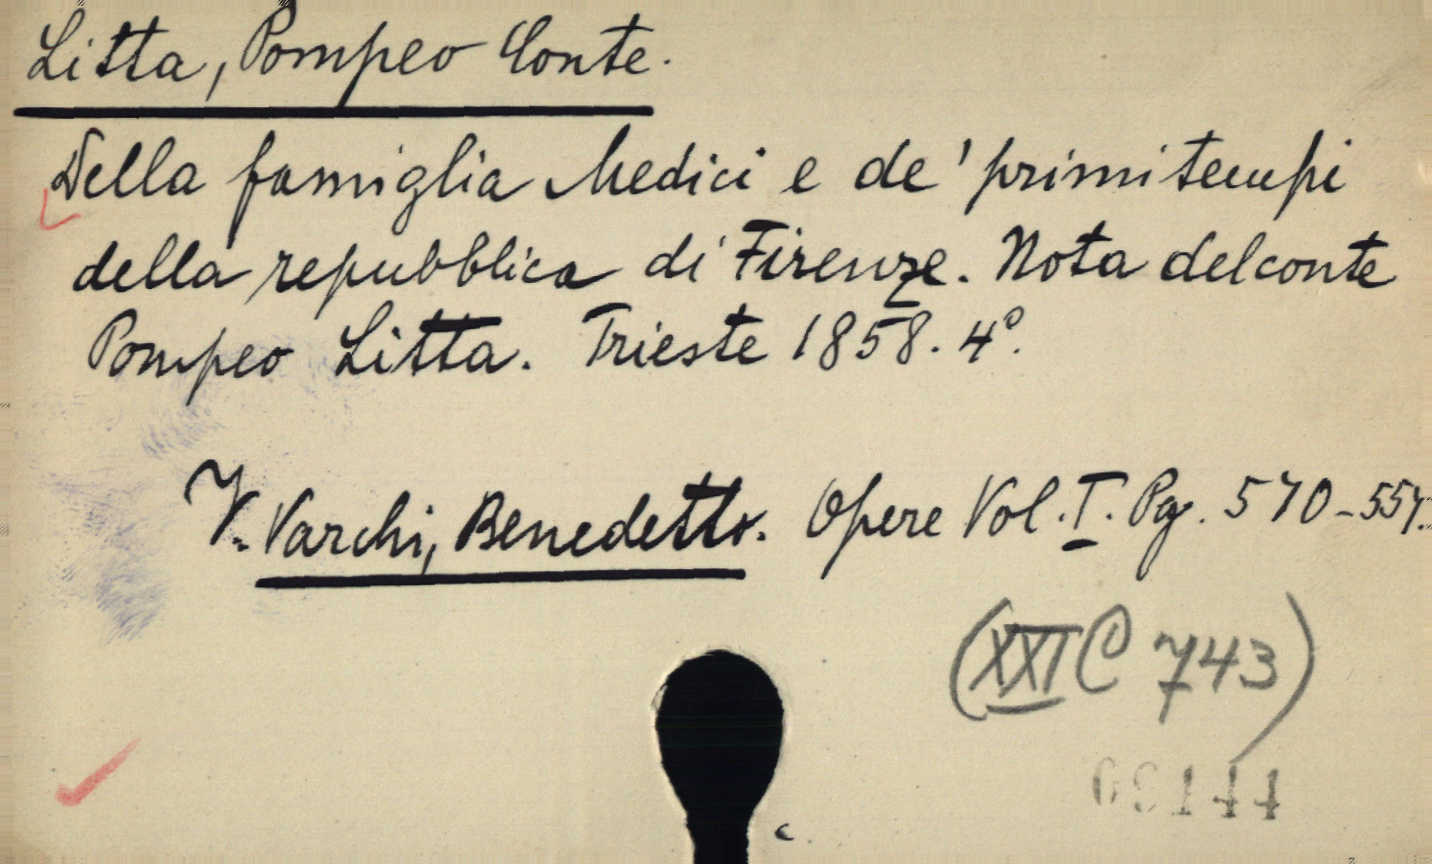 Litta, Pompeo Conte.
Della famiglia Medici e de' primi tempi
della repubblica di Firenze. Nota del conte
Pompeo Litta. Trieste 1858. 4°.
V. Varchi, Benedetto. Opere Vol. I. Pg. 570-557.
(XXI C 743)
09144